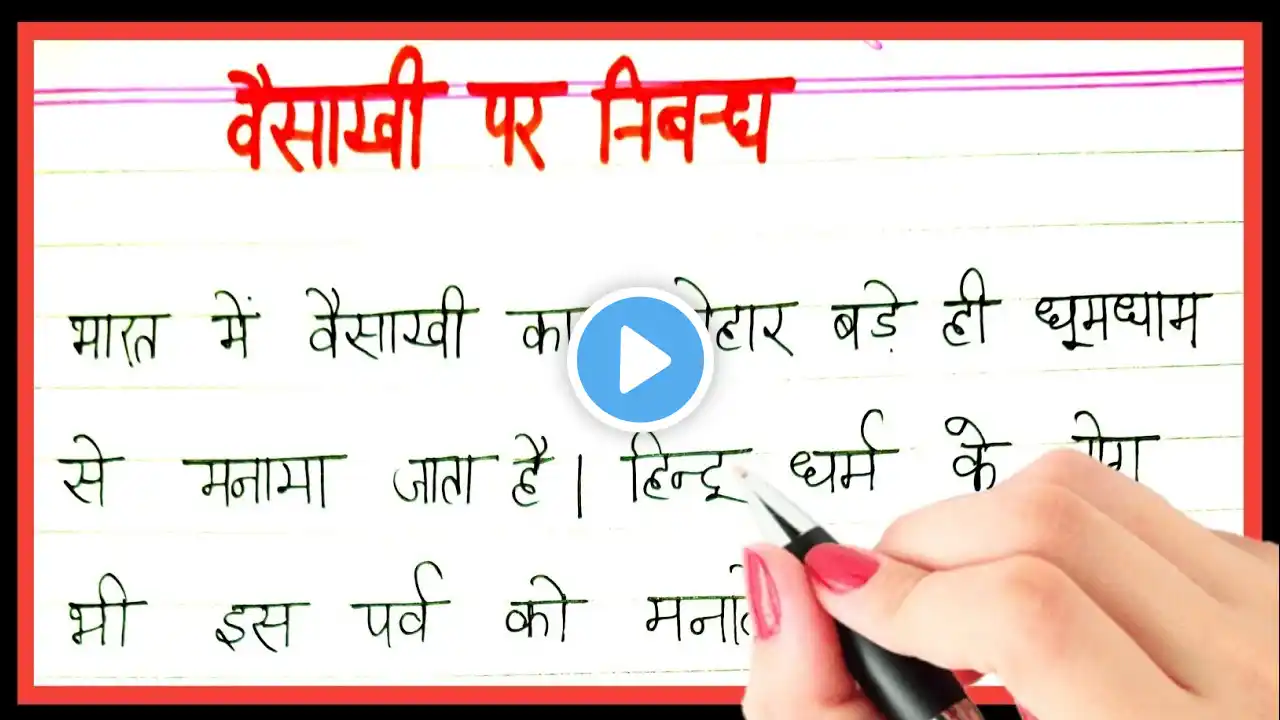 वैसाखी पर निबन्ध
भारत में वैसाखी का बड़े ही धूमधाम
से मनाया जाता है। हिन्दू धर्म के
भी इस पर्व को